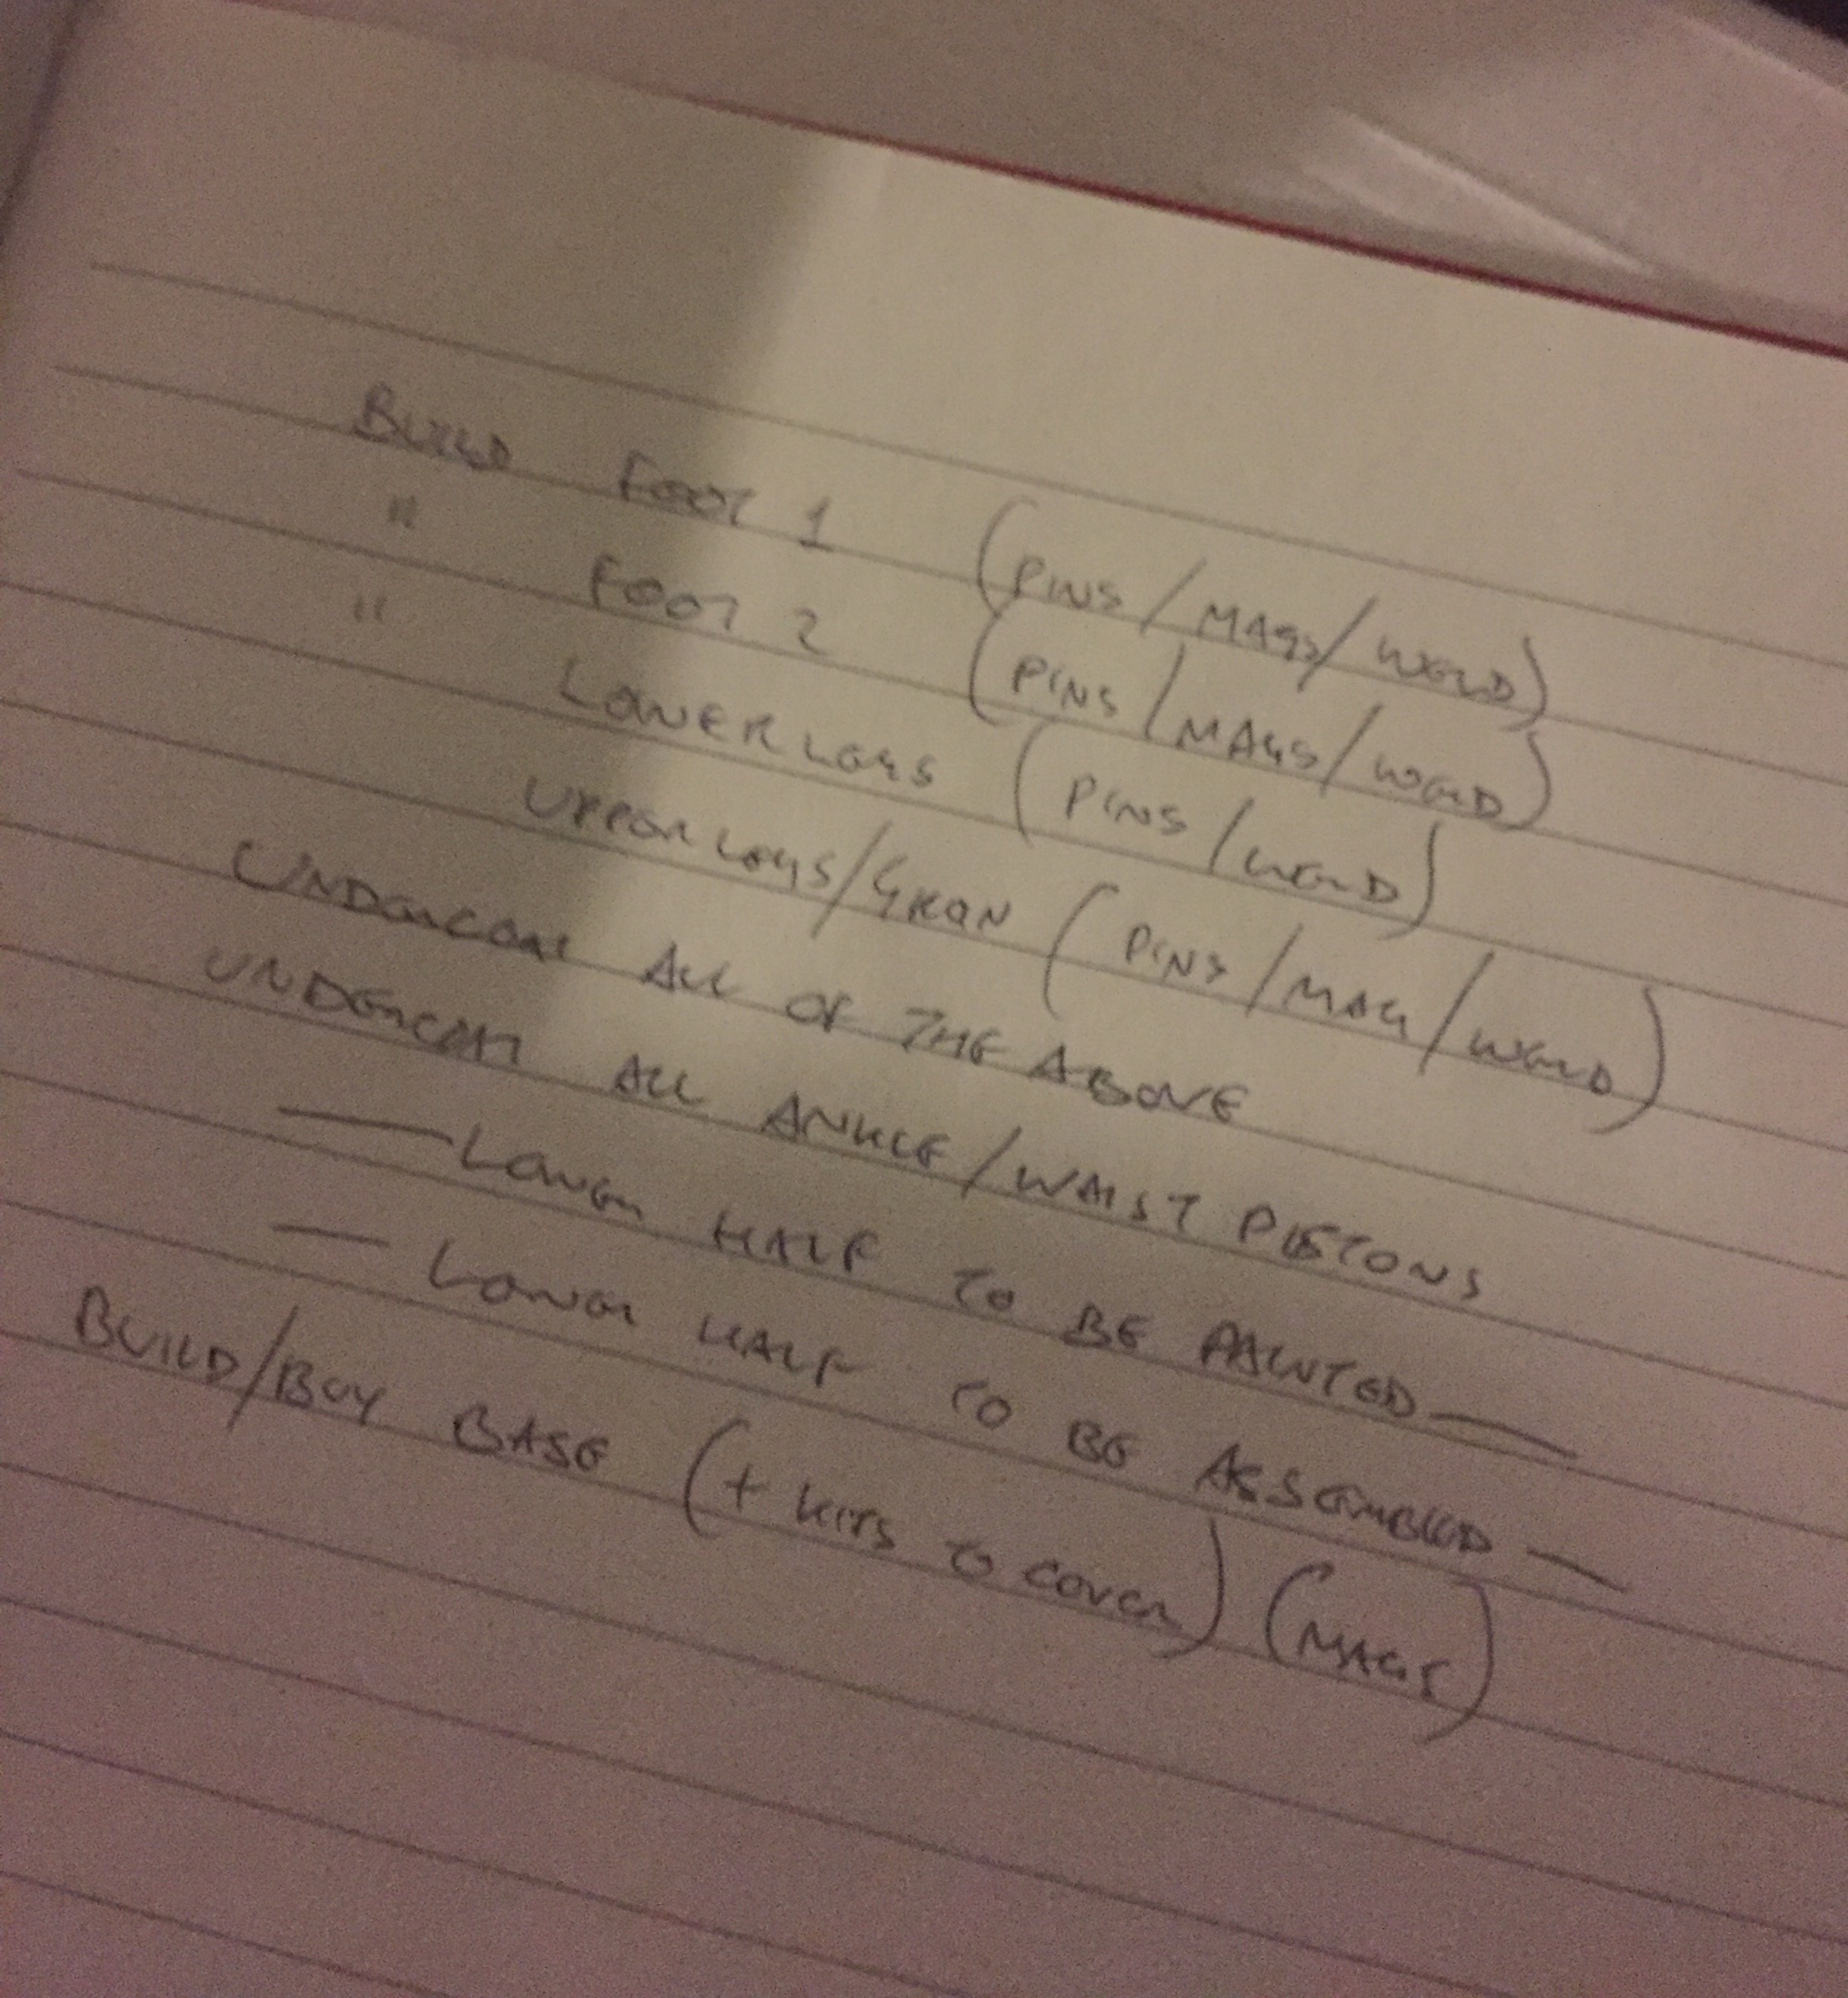 BUILD FOOT 1 (PINS/MAGS/WELD)
" FOOT 2 (PINS/MAGS/WELD)
" LOWER LEGS (PINS/WELD)
UPPER LEGS/GROIN (PINS/MAG/WELD)
UNDERCOAT ALL OF THE ABOVE
UNDERCOAT ALL ANKLE/WAIST PISTONS
— LOWER HALF TO BE PAINTED —
— LOWER HALF TO BE ASSEMBLED —
BUILD/BUY BASE (+ KITS TO COVER) (MAGS)